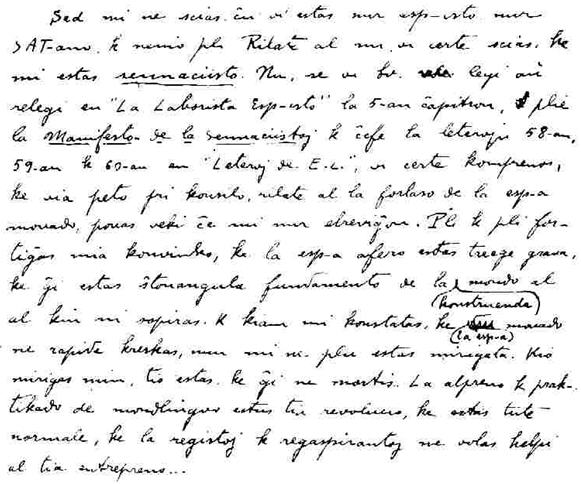 Sed mi ne scias, ĉu vi estas nur esp-isto nur
SAT-ano, k nenio pli. Rilate al mi, vi certe scias, ke
mi estas sennaciisto. Nu, se vi bv. legi aŭ
relegi en "La Laborista Esp-isto" la 5-an ĉapitron, plie
la Manifeston de la sennaciistoj k ĉefe la leterojn 58-an,
59-an k 60-an en "Leteroj de E.L.", vi certe komprenos,
ke via peto pri konsilo, rilate al la forlaso de la esp-a
movado, povas veki ĉe mi nur ekreviĝon. Pli k pli for-
tiĝas mia konvinko, ke la esp-a afero estas treege grava,
ke ĝi estas ŝtonangula fundamento de la mondo al
(konstruenda)
al kiu ni sopiras. K kiam mi konstatas, ke movado
(la esp-a)
ne rapide kreskas, nun mi ne plu estas mirigata. Kio
mirigas min, tio estas, ke ĝi ne mortis. La alpreno k prak-
tikado de mondlingvo estus tia revolucio, ke estas tute
normale, ke la registoj k regaspirantoj ne volas helpi
al tia entrepreno...